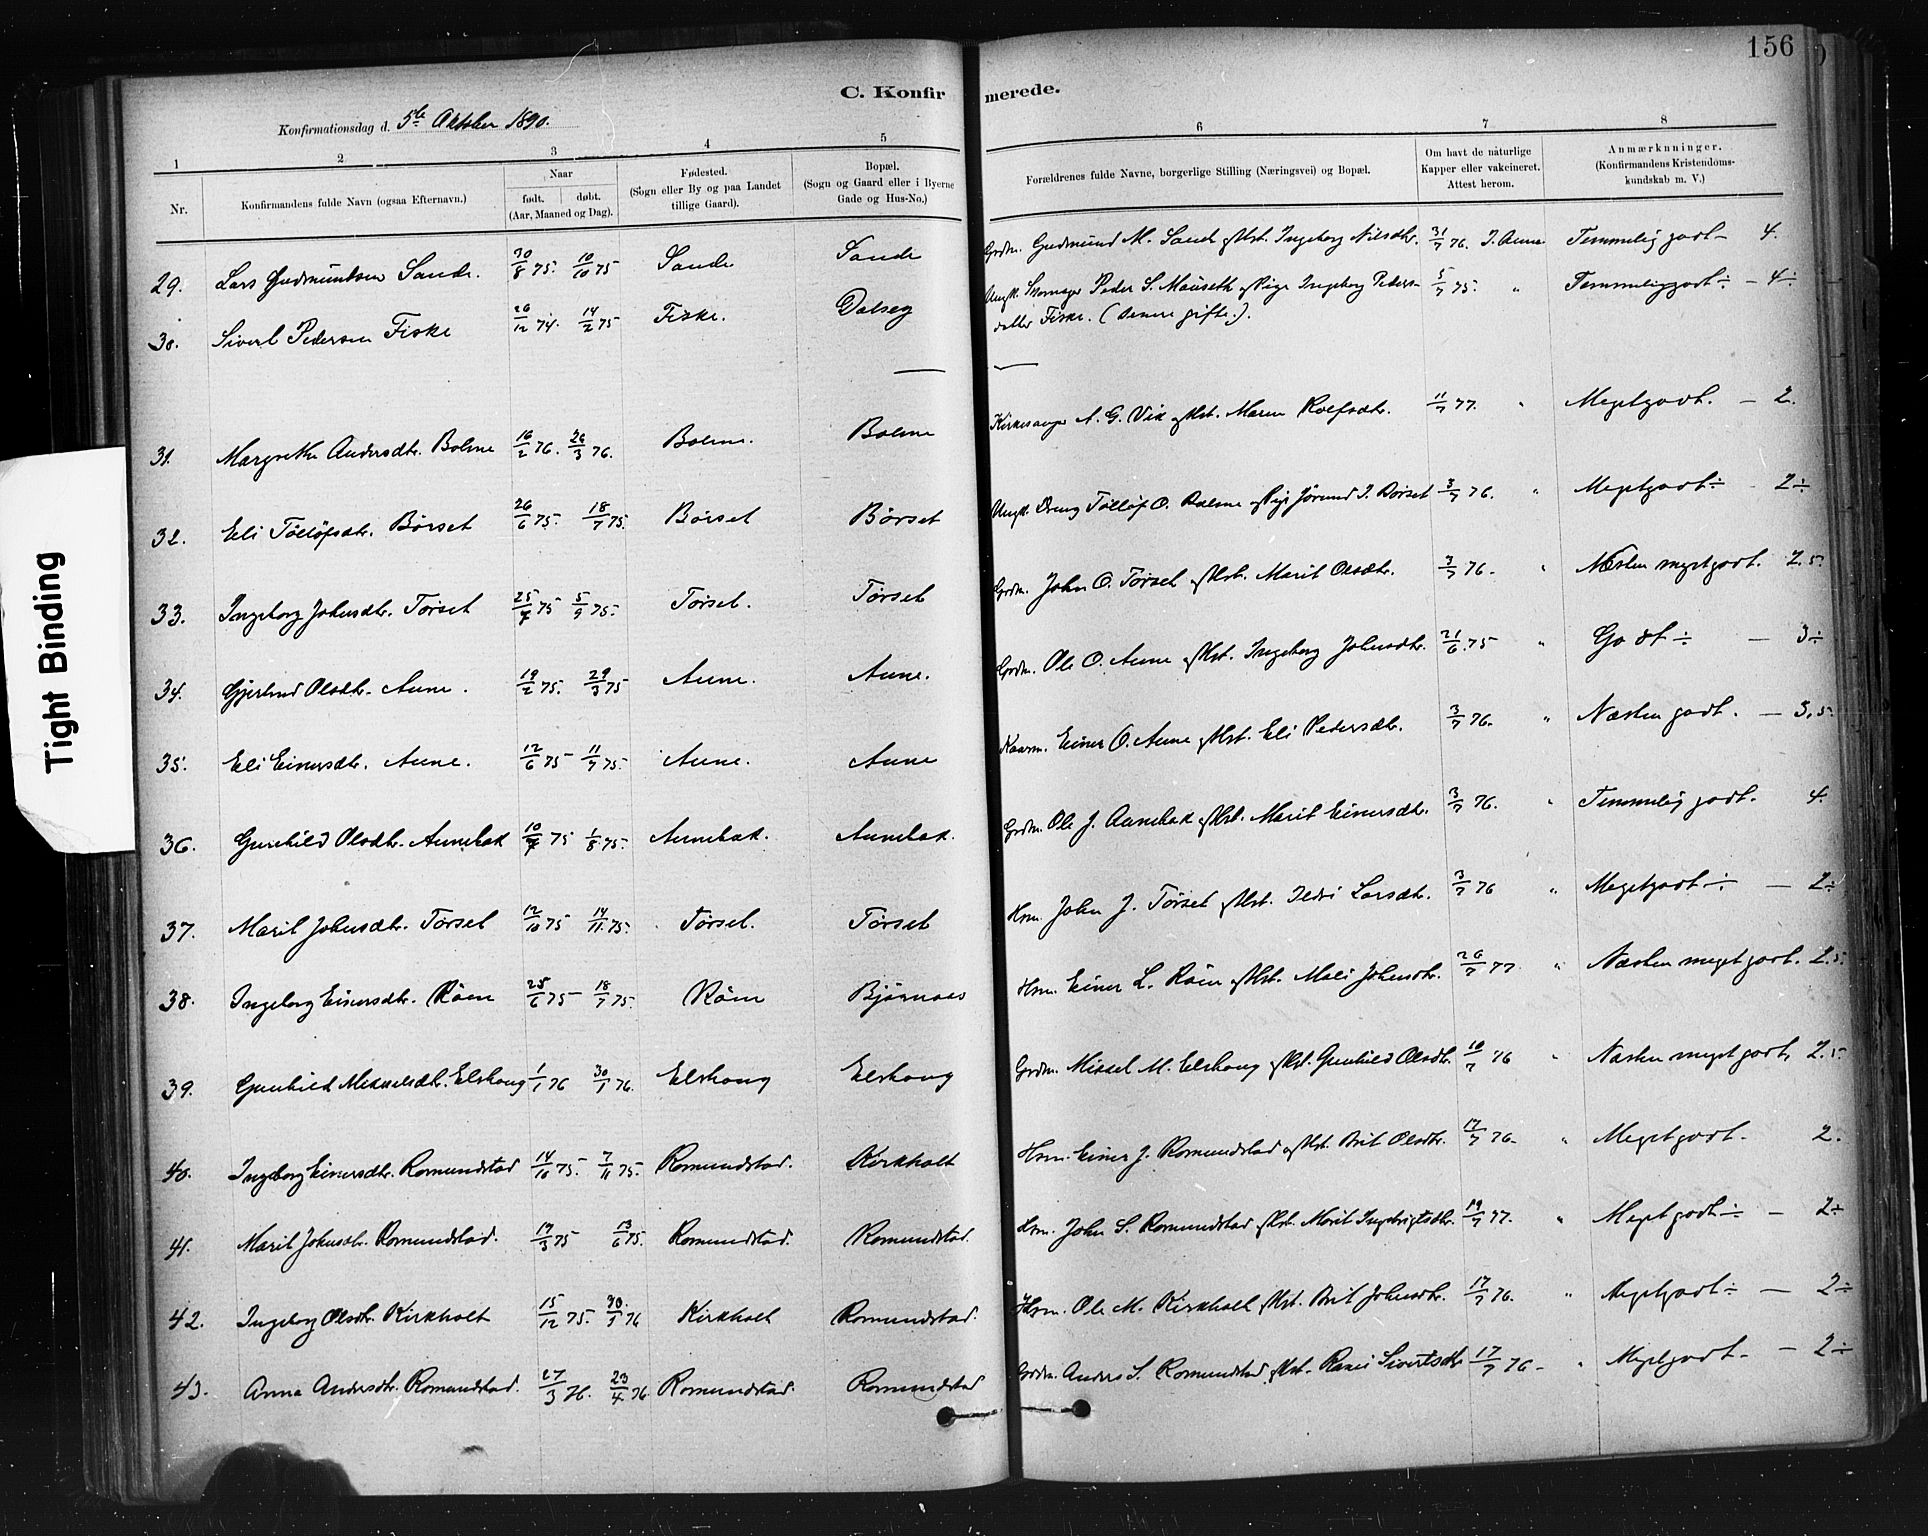 156
C. Konfirmerede.
Konfirmationsdag d. 5te Oktober 1890.
1 2 3 4 5 6 7 8
Nr. Konfirmandens fulde Navn (ogsaa Efternavn). Naar født. døbt. (Aar, Maaned og Dag). Fødested. (Sogn eller By og paa Landet tillige Gaard). Bopæl. (Sogn og Gaard eller i Byerne Gade og Hus-No.) Forældrenes fulde Navne, borgerlige Stilling (Næringsvei) og Bopæl. Om havt de naturlige Kapper eller vakcineret. Attest herom. Anmærkninger. (Konfirmandens Kristendomskundskab m. V.)
29. Lars Gudmundsen Sande. 30/8 75. 10/10 75 Sande Sande Grdm. Gudmund M. Sande og Hst. Ingeborg Nilsdtr. 31/7 76. J. Aune Temmelig godt - 4.
30. Sivert Pedersen Fiske 26/12 74. 14/2 75 Fiske. Dalseg Ungk. Skomager Peder S. Mauseth og Pige Ingeborg Peders- 5/7 75. " Temmeliggodt÷ - 4÷
datter Fiske. (senere gifte.).
31. Margrethe Andersdtr. Bolme 16/2 76. 26/3 76. Bolme. Bolme Kirkesanger A. G. Vik og Hst. Maren Roefsdtr. 11/7 77. " Megetgodt. - 2.
32. Eli Tölløfsdtr. Børset 26/6 75. 18/7 75. Børset Børset Ungk. Dreng Tölløf O. Bolme og Pige Jørund J. Børset 3/7 76. " Megetgodt÷ - 2÷
33. Ingeborg Johnsdtr. Tørset 25/7 75 5/9 75. Tørset. Tørset Grdm. John O. Tørset og Hst. Marit Olsdtr. 3/7 76. " Næsten megetgodt. 2.5.
34. Gjertrud Olsdtr. Aune. 19/2 75. 29/3 75 Aune. Aune. Grdm. Ole O. Aune og Hst. Ingeborg Johnsdtr. 21/6 75 " Godt÷ - 3÷
35. Eli Einersdtr. Aune. 12/6 75 11/7 75. Aune. Aune Kaarm. Einer O. Aune og Hst. Eli Pedersdtr. 3/7 76. " Næsten godt. - 3,5.
36. Gunhild Olsdtr. Aunebak 10/7 75 1/8 75. Aunebak. Aunebak. Grdm. Ole J. Aunebak og Hst. Marit Einersdtr. 3/7 76. " Temmelig godt. 4.
37. Marit Johnsdtr. Tørset 12/10 75 14/11 75. Tørset. Tørset Hsm. John J. Tørset og Hst. Sedsi Larsdtr. 3/7 76 " Megetgodt÷ - 2÷
38. Ingeborg Einersdtr. Röen 25/6 75 18/7 75. Röen Bjørnaas Hsm. Einer L. Röen og Hst. Mali Johnsdtr. 26/7 77. " Næsten megetgodt. 2.5.
39. Gunhild Mikkelsdtr. Elshaug 1/1 76 30/1 76. Elshaug Elshaug Grdm. Mikkel M. Elshaug og Hst. Gunhild Olsdtr. 10/7 76 " Næsten megetgodt, 2.5.
40. Ingeborg Einersdtr. Romundstad 14/10 75. 7/11 75. Romundstad. Kirkholt Hsm. Einer J. Romundstad og Hst. Brit Olsdtr. 17/7 76. " Megetgodt. 2.
41. Marit Johnsdtr. Romundstad. 17/3 75 13/6 75. Romundstad. Romundstad. Hsm. John S. Romundstad og Hst. Marit Ingebrigtsdtr. 19/7 77. " Megetgodt÷ - 2÷
42. Ingeborg Olsdtr. Kirkholt 15/12 75. 30/1 76 Kirkholt Romundstad. Hsm. Ole M. Kirkholt og Hst. Brit Johnsdtr. 17/7 76. " Megetgodt÷ - 2÷
43. Anna Andersdtr. Romundstad. 27/3 76. 23/4 76. Romundstad. Romundstad Grdm. Anders S. Romundstad og Hst. Ranei Sivertsdtr. 17/7 76 - " Megetgodt. - 2÷
Tight Binding